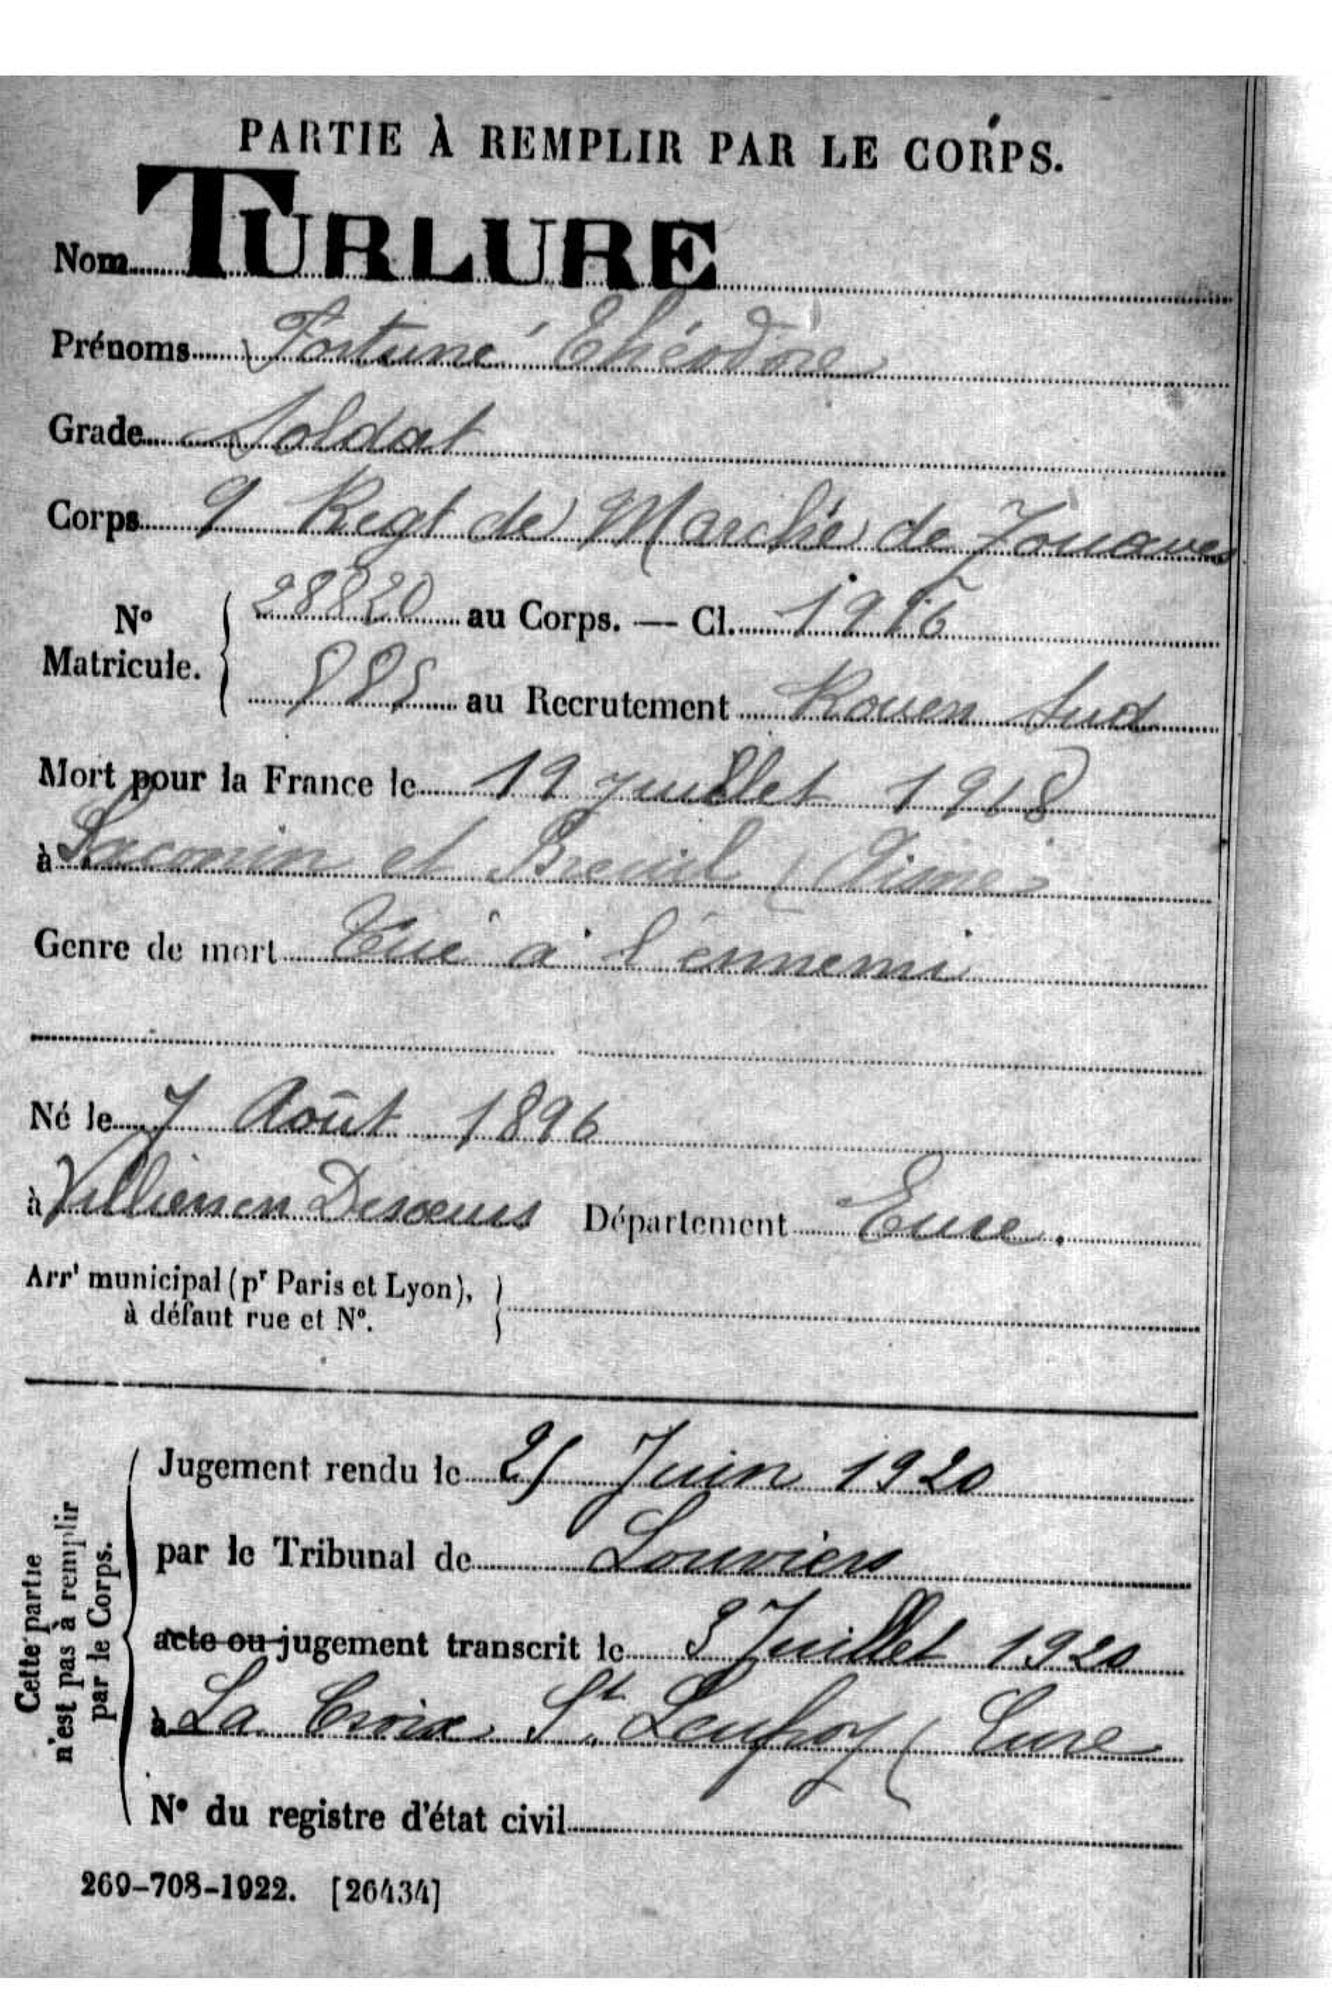 PARTIE À REMPLIR PAR LE CORPS.
Nom TURLURE
Prénoms Fortuné Théodore
Grade Soldat
Corps 9 Regt de Marche de Zouaves
No Matricule. 28820 au Corps. — Cl. 1916
885 au Recrutement Rouen Sud
Mort pour la France le 19 juillet 1918
à Saconin et Breuil (Aisne)
Genre de mort Tué à l'ennemi
Né le 7 Août 1896
à Villiers en Desœuvre Département Eure.
Arrt municipal (pr Paris et Lyon),
à défaut rue et No.
Cette partie
n'est pas à remplir
par le Corps.
Jugement rendu le 25 Juin 1920
par le Tribunal de Louviers
acte ou jugement transcrit le 3 Juillet 1920
à La Croix St Leufroy (Eure
No du registre d'état civil
269-708-1922. [26434]